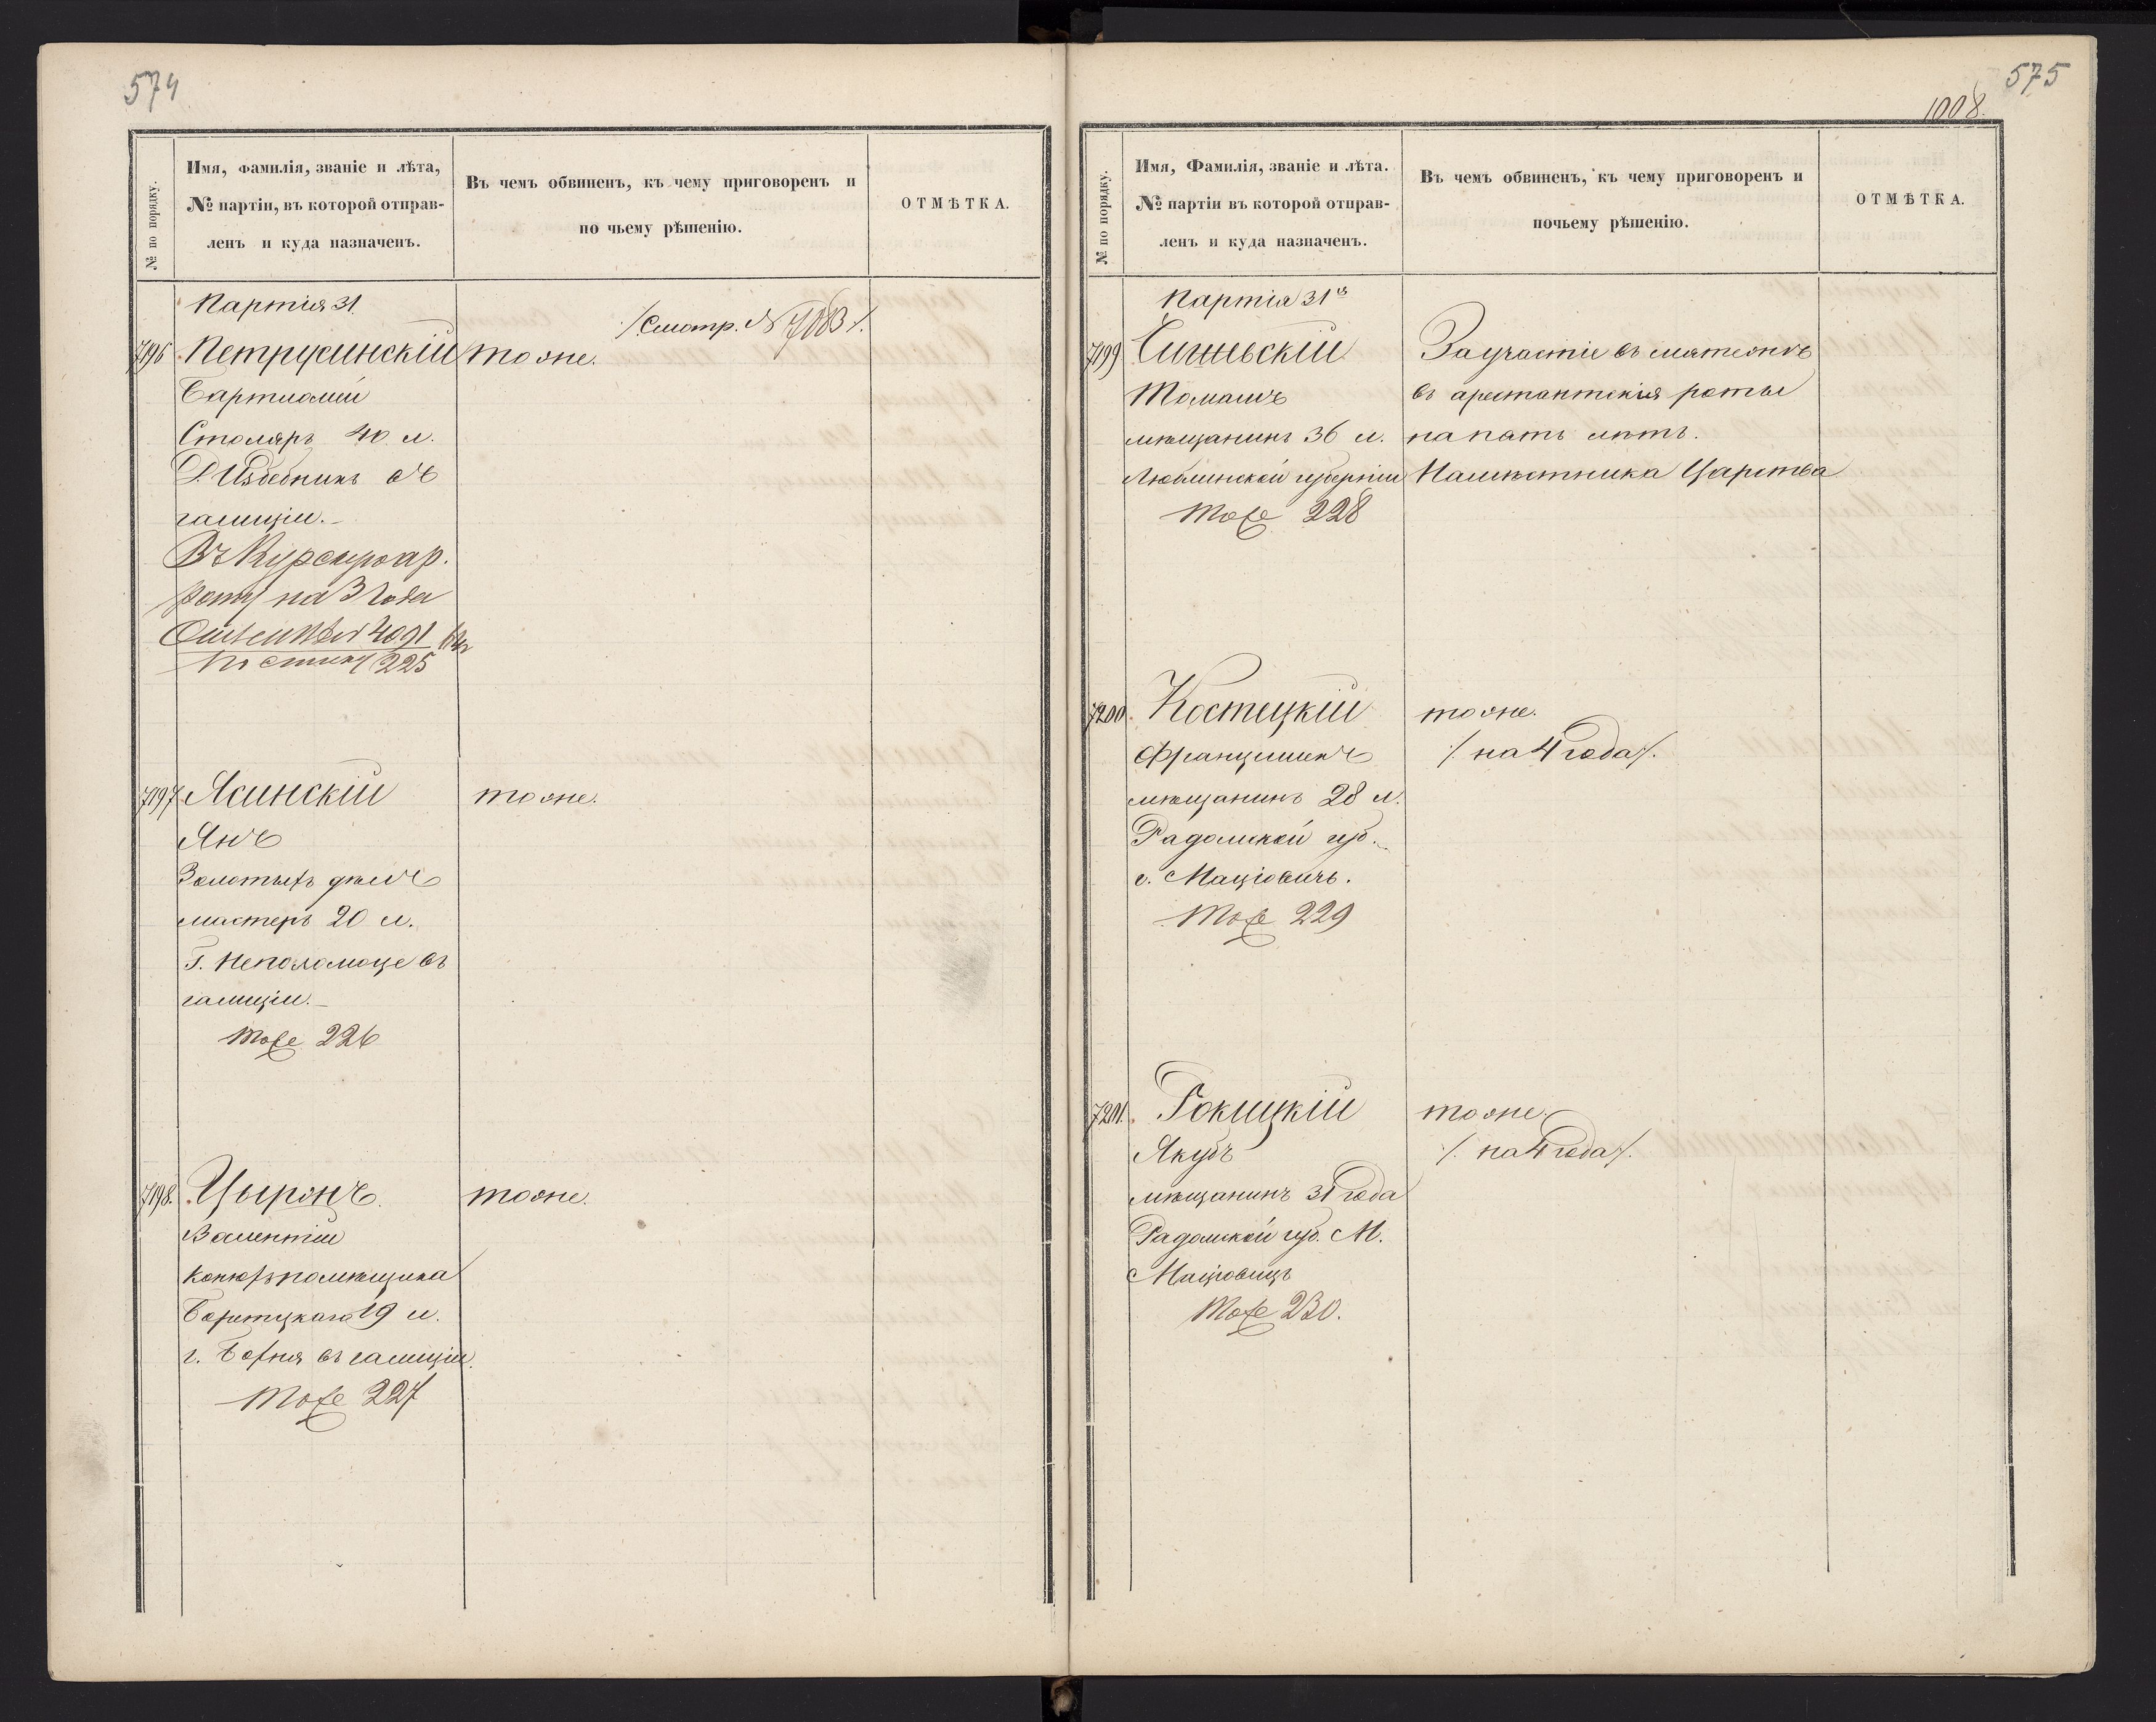 574
№ по порядку.
Имя, фамилія, званіе и лѣта,
№ партіи, въ которой отправ-
ленъ и куда назначенъ.
Въ чемъ обвиненъ, къ чему приговоренъ и
по чьему рѣшенію.
ОТМѢТКА.
Партія 31.
/Смотр. № 7083/.
7196 Петрусинскій тоже.
Бартломій
Столяръ 40 л.
въ
галиціи.
Въ Курскую ар.
роту на 3 года
225
7197 Ясинскій тоже.
Янъ
Золотыхъ дѣлъ
мастеръ 20 л.
Г. Неполомоце въ
галиціи.
Тоже 226
7198. Цыронъ. тоже.
Валентій
Конюхъ помѣщика
19 л.
г. Бохня въ галиціи.
Тоже 227
575
1008.
№ по порядку.
Имя, Фамилія, званіе и лѣта.
№ партіи въ которой отправ-
ленъ и куда назначенъ.
Въ чемъ обвиненъ, къ чему приговоренъ и
почьему рѣшенію.
ОТМѢТКА.
Партія 31я
7199 За участіе въ мятежѣ
Томашъ въ арестантскія роты
мѣщанинъ 36 л. на пять лѣтъ.
Люблинской губерніи Намѣстника Царства
Тоже 228
7200. Костецкій тоже.
Францишекъ /. на 4 года/.
мѣщанинъ 28 л.
Радомской губ.
с. Маціовичъ.
Тоже 229
7201. Рокицкій тоже.
Якубъ /. на 4 года/.
мѣщанинъ 31 года
Радомской губ. М.
Маціовицъ
Тоже 230.